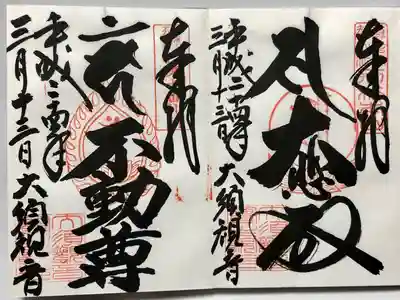 奉拝
大悲殿
平成二十四年
三月十三日 大須観音
奉拝
不動尊
平成二十四年
三月十三日 大須観音